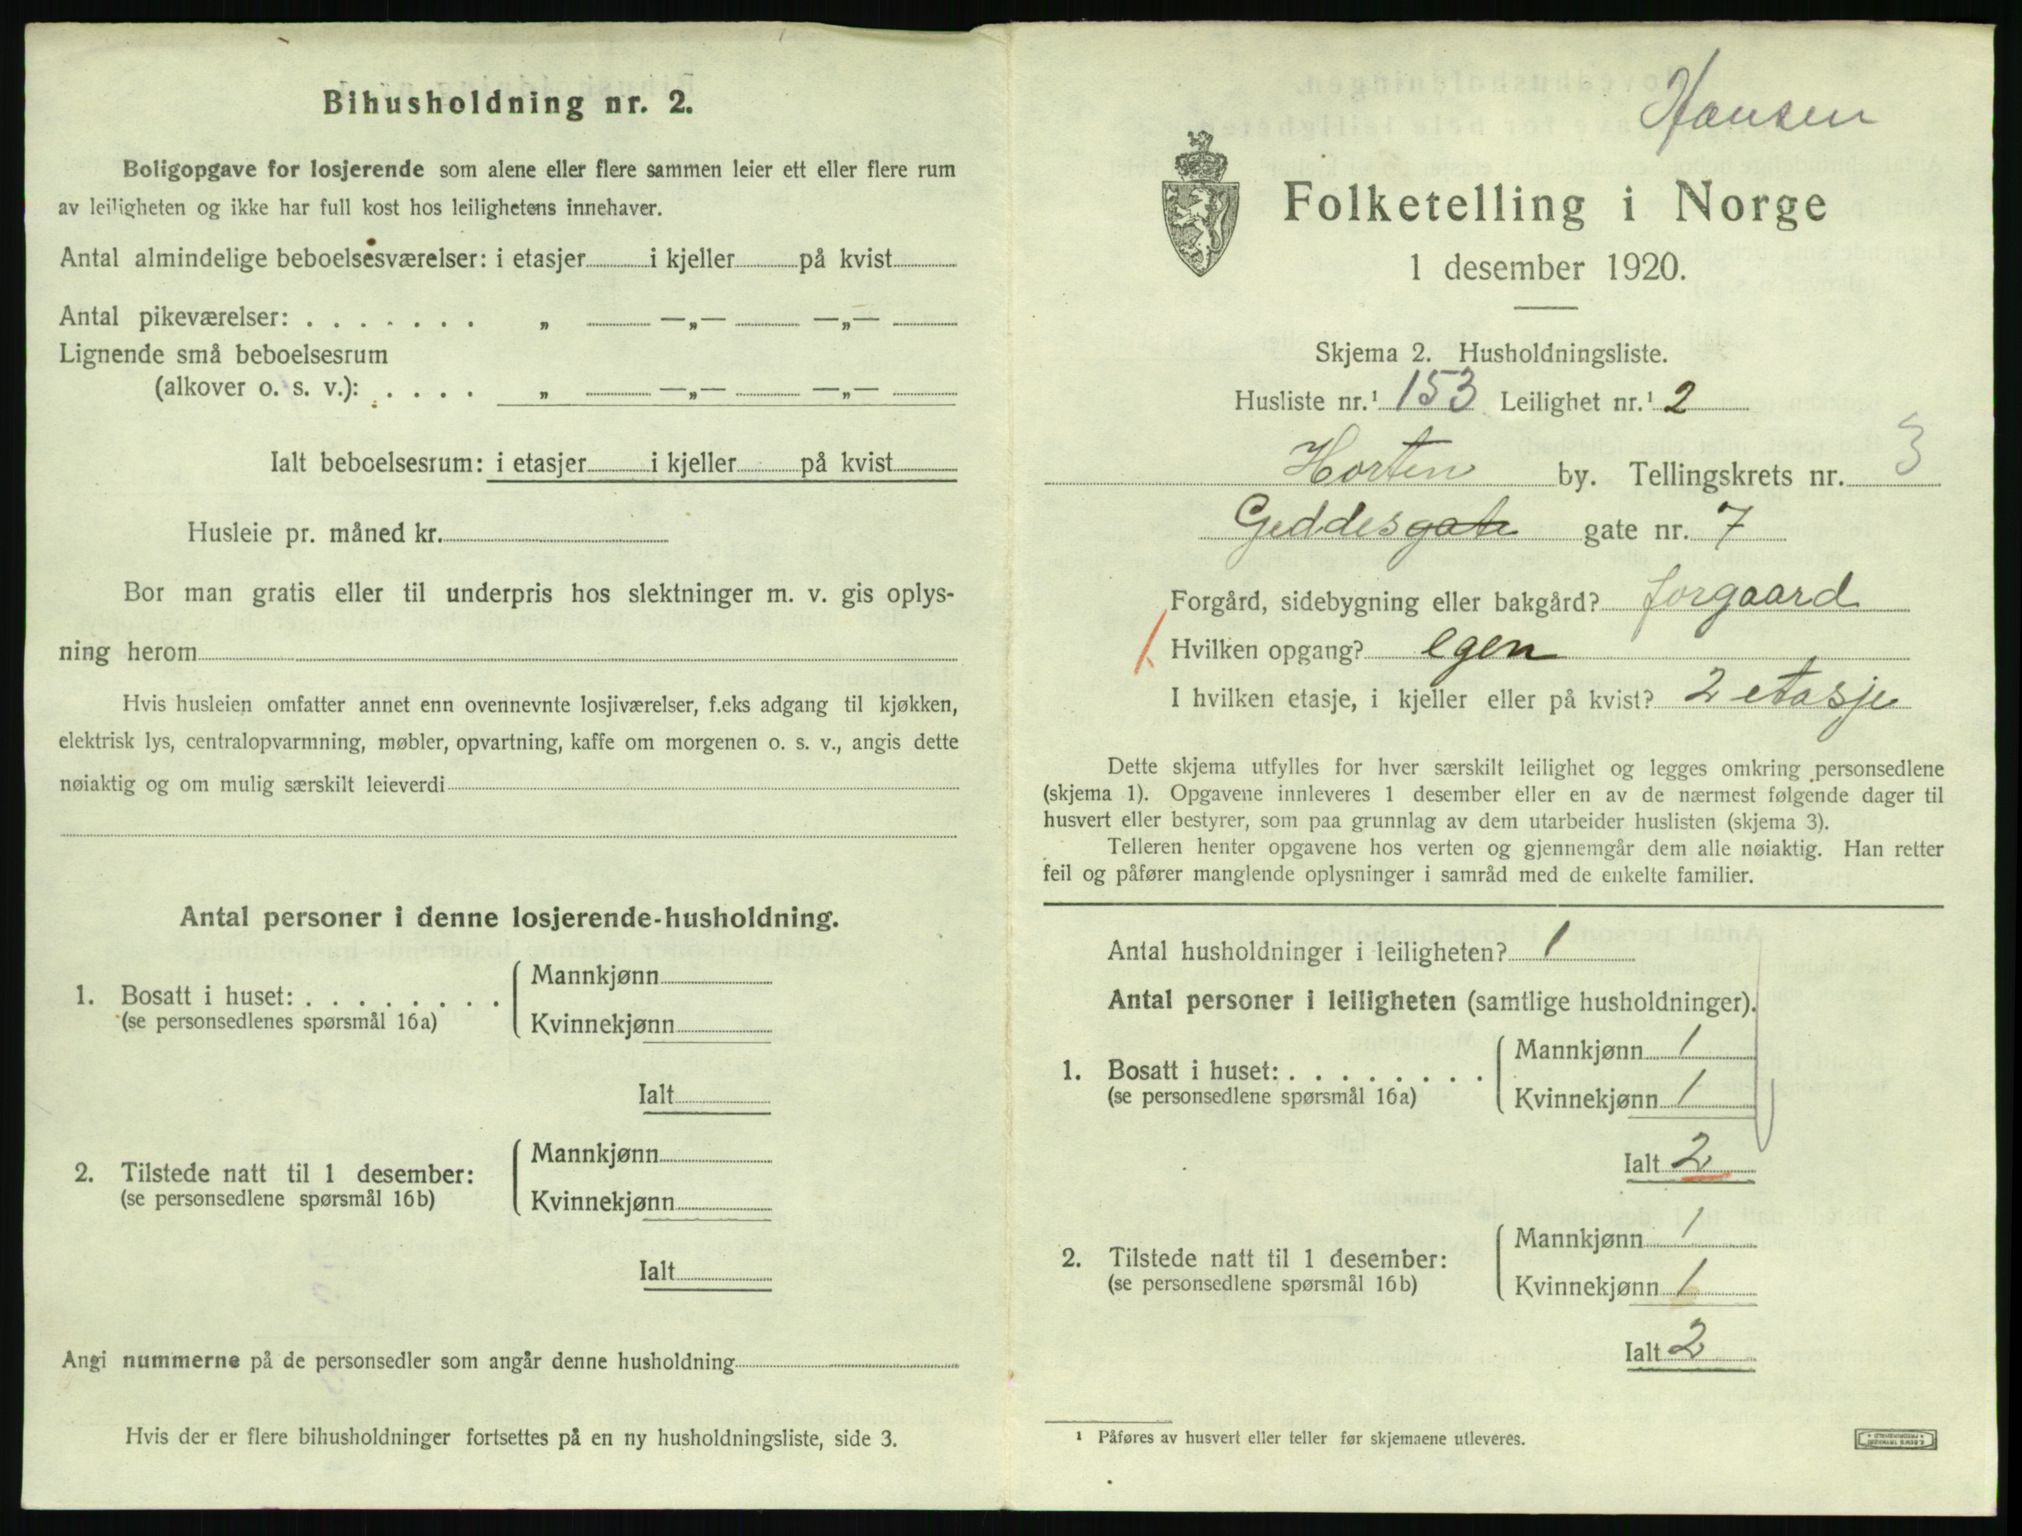 Bihusholdning nr. 2.
Boligopgave for losjerende som alene eller flere sammen leier ett eller flere rum
av leiligheten og ikke har full kost hos leilighetens innehaver.
Antal almindelige beboelsesværelser: i etasjer i kjeller på kvist
Antal pikeværelser: . . . . . . . „ —„— —„—
Lignende små beboelsesrum
(alkover o. s. v.): . . . . „ —„— —„—
Ialt beboelsesrum: i etasjer i kjeller på kvist
Husleie pr. måned kr.
Bor man gratis eller til underpris hos slektninger m. v. gis oplys-
ning herom
Hvis husleien omfatter annet enn ovennevnte losjiværelser, f.eks adgang til kjøkken,
elektrisk lys, centralopvarmning, møbler, opvartning, kaffe om morgenen o. s. v., angis dette
nøiaktig og om mulig særskilt leieverdi
Antal personer i denne losjerende-husholdning.
1. Bosatt i huset: . . . . . . . .
(se personsedlenes spørsmål 16a)
Mannkjønn
Kvinnekjønn
Ialt
2. Tilstede natt til 1 desember:
(se personsedlene spørsmål 16b)
Mannkjønn
Kvinnekjønn
Ialt
Angi nummerne på de personsedler som angår denne husholdning
Hvis der er flere bihusholdninger fortsettes på en ny husholdningsliste, side 3.
Hansen
Folketelling i Norge
1 desember 1920.
Skjema 2. Husholdningsliste.
Husliste nr.¹ 153 Leilighet nr.¹ 2
Horten by. Tellingskrets nr. 3
Geddesgate gate nr. 7
Forgård, sidebygning eller bakgård? forgaard
Hvilken opgang? egen
I hvilken etasje, i kjeller eller på kvist? 2 etasje
Dette skjema utfylles for hver særskilt leilighet og legges omkring personsedlene
(skjema 1). Opgavene innleveres 1 desember eller en av de nærmest følgende dager til
husvert eller bestyrer, som paa grunnlag av dem utarbeider huslisten (skjema 3).
Telleren henter opgavene hos verten og gjennemgår dem alle nøiaktig. Han retter
feil og påfører manglende oplysninger i samråd med de enkelte familier.
Antal husholdninger i leiligheten? 1
Antal personer i leiligheten (samtlige husholdninger).
1. Bosatt i huset: . . . . . . . .
(se personsedlene spørsmål 16a)
Mannkjønn 1
Kvinnekjønn 1
Ialt 2
2. Tilstede natt til 1 desember:
(se personsedlene spørsmål 16b)
Mannkjønn 1
Kvinnekjønn 1
Ialt 2
¹ Påføres av husvert eller teller før skjemaene utleveres.